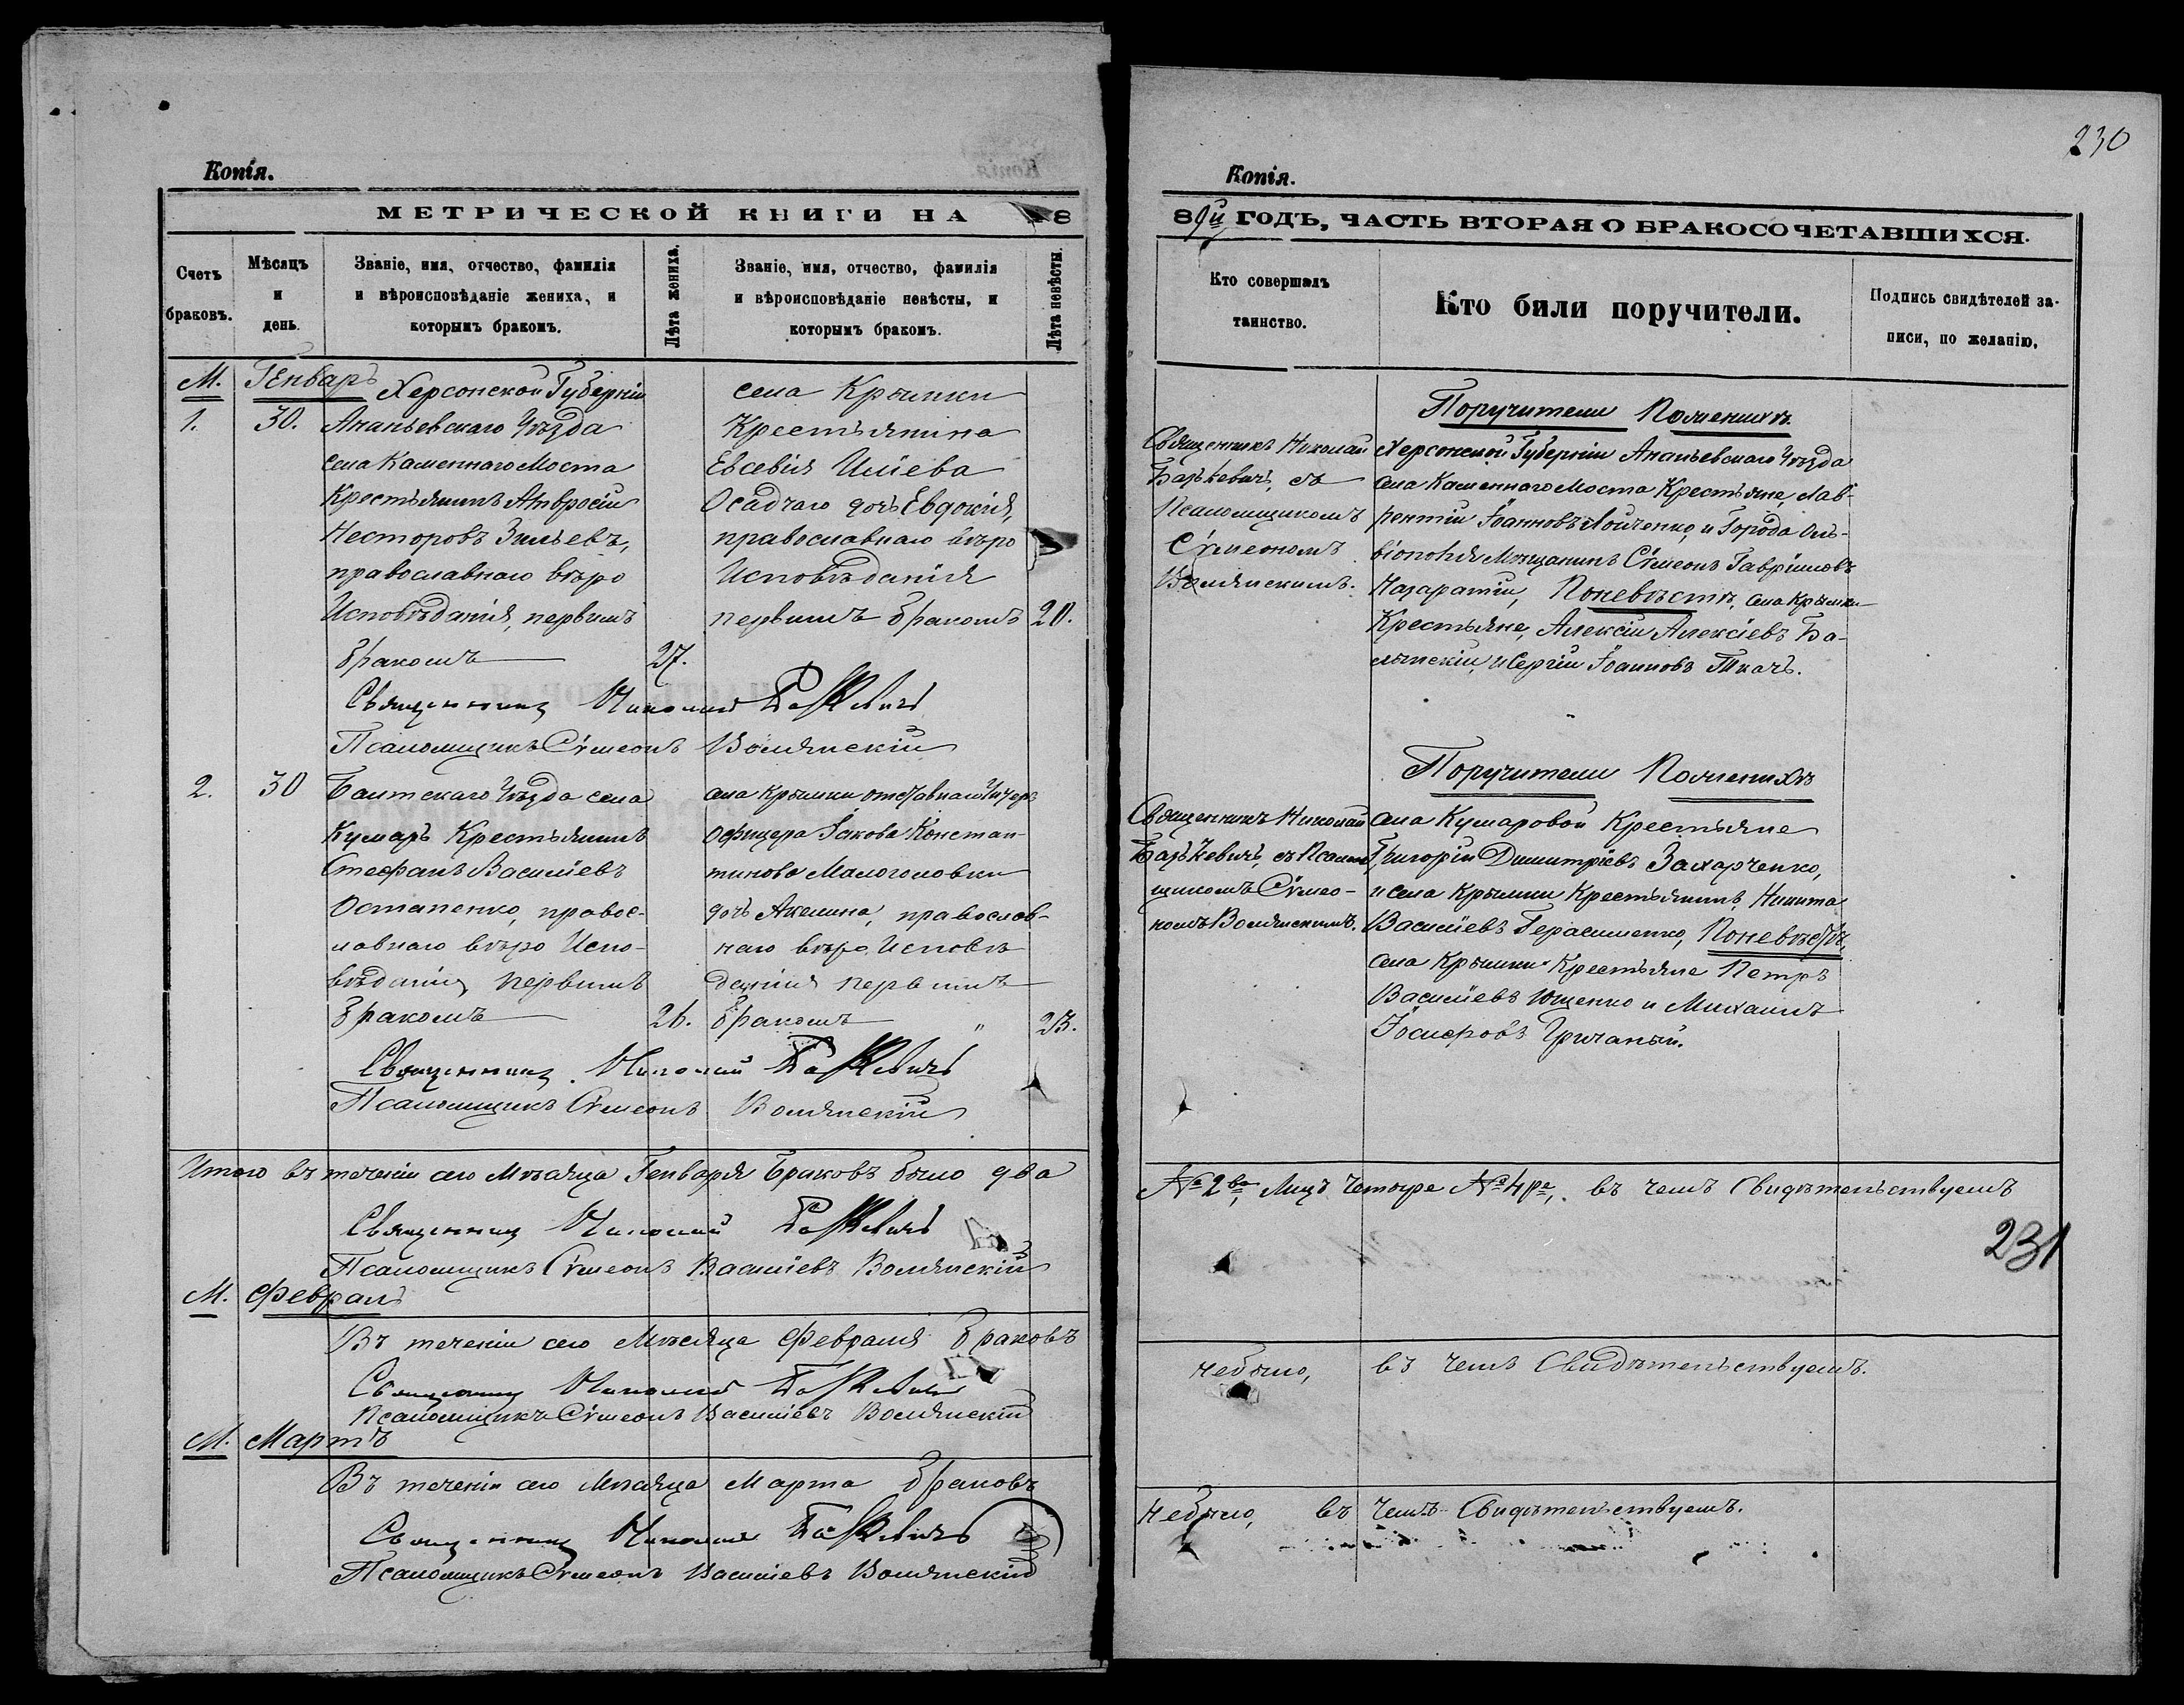 Копія.
МЕТРИЧЕСКОЙ КНИГИ НА 18
Счетъ браковъ.
Мѣсяцъ и день.
Званіе, имя, отчество, фамилія
и вѣроисповѣданіе жениха, и
которымъ бракомъ.
Лѣта жениха.
Званіе, имя, отчество, фамилія
и вѣроисповѣданіе невѣсты, и
которымъ бракомъ.
Лѣта невѣсты.
М. Генварь
1. 30.
Херсонской Губерніи
Ананьевскаго Уѣзда
села Каменнаго Моста
Крестьянинъ Амвросій
Несторовъ
православнаго вѣро
Исповѣданія, первымъ
бракомъ 27.
села Крымки
Крестьянина
Евсевія Илiева
Осадчаго дочь Евдокія,
православнаго вѣро
Исповѣданія
первымъ бракомъ 20.
Священникъ Николай
Псаломщикъ Сѵмеонъ Волянскій
2. 30
Балтскаго Уѣзда села
Кумаръ Крестьянинъ
Стефанъ Василіевъ
Остапенко, правос-
лавнаго вѣро Испо-
вѣданія, первымъ
бракомъ 26.
села Крымки отставнаго Унтеръ
Офицера Іакова Констан-
тинова Малоголовки
дочь Акелина, православ-
наго вѣро Исповѣ
данія первымъ
бракомъ " 23.
Священникъ Николай
Псаломщикъ Сѵмеонъ Волянскій
Итого въ теченіи сего Мѣсяца Генваря Браковъ было два
Священникъ Николай
Псаломщикъ Сѵмеонъ Василіевъ Волянскій
М. Февраль
Въ теченіи сего Мѣсяца Февраля браковъ
Священникъ Николай
Псаломщикъ Сѵмеонъ Василіевъ Волянскій
М. Мартъ
Въ теченіи сего Мѣсяца Марта браковъ
Священникъ Николай
Псаломщикъ Сѵмеонъ Василіевъ Волянскій
230
Копія.
89й ГОДЪ, ЧАСТЬ ВТОРАЯ О БРАКОСОЧЕТАВШИХСЯ.
Кто совершалъ
таинство.
Кто били поручители.
Подпись свидѣтелей за-
писи, по желанію,
Священникъ Николай
съ
Псаломщикомъ
Сѵмеономъ
Волянскимъ.
Поручители По женихѣ
Херсонской Губерніи Ананьевскаго Уѣзда
села Каменнаго Моста Крестьяне, Лав-
рентій Іоанновъ и Города Оль-
віополя Мѣщанинъ Сѵмеонъ Гавріиловъ
По невѣстѣ, села Крымки
Крестьяне, Алексій Алексіевъ Ба-
и Сергій Іоанновъ Ткачъ.
Священникъ Николай
съ Псалом-
щикомъ Сѵмео-
номъ Волянскимъ.
Поручители По женихѣ
села Кумаровой Крестьяне
Григорій Димитріевъ Захарченко,
и села Крымки Крестьянинъ Никита
Василіевъ Герасименко, По невѣстѣ,
села Крымки Крестьяне Петръ
Василіевъ Ющенко и Михаилъ
Іосифовъ Гричаный.
№ 2ва, Лицъ четыре № 4ре, въ чемъ Свидѣтельствуемъ
231
небыло, въ чемъ Свидѣтельствуемъ.
Небыло, въ чемъ Свидѣтельствуемъ.